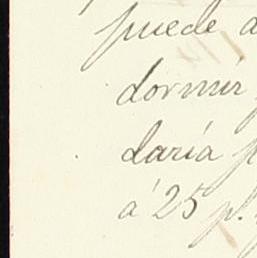 puede
dormir
daría
á 25